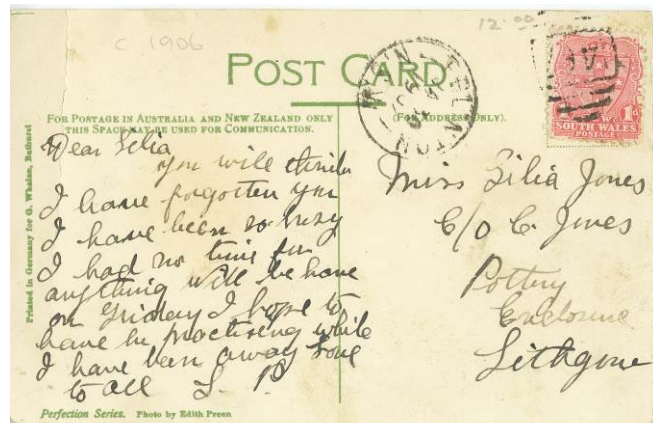 c 1906
12.00
POST CARD
FOR POSTAGE IN AUSTRALIA AND NEW ZEALAND ONLY
THIS SPACE MAY BE USED FOR COMMUNICATION.
(FOR ADDRESS ONLY).
SOUTH WALES
POSTAGE
1d
Printed in Germany for G. Whalan, Bathurst
Dear Lilia
you will think
I have forgotten you
I have been so busy
I had no time for
anything will be home
on Friday I hope to
have be practising while
I have been away love
to all L. P
Miss Lilia Jones
C/O C. Jones
Pottery
Enclosure
Lithgow
Perfection Series. Photo by Edith Preen